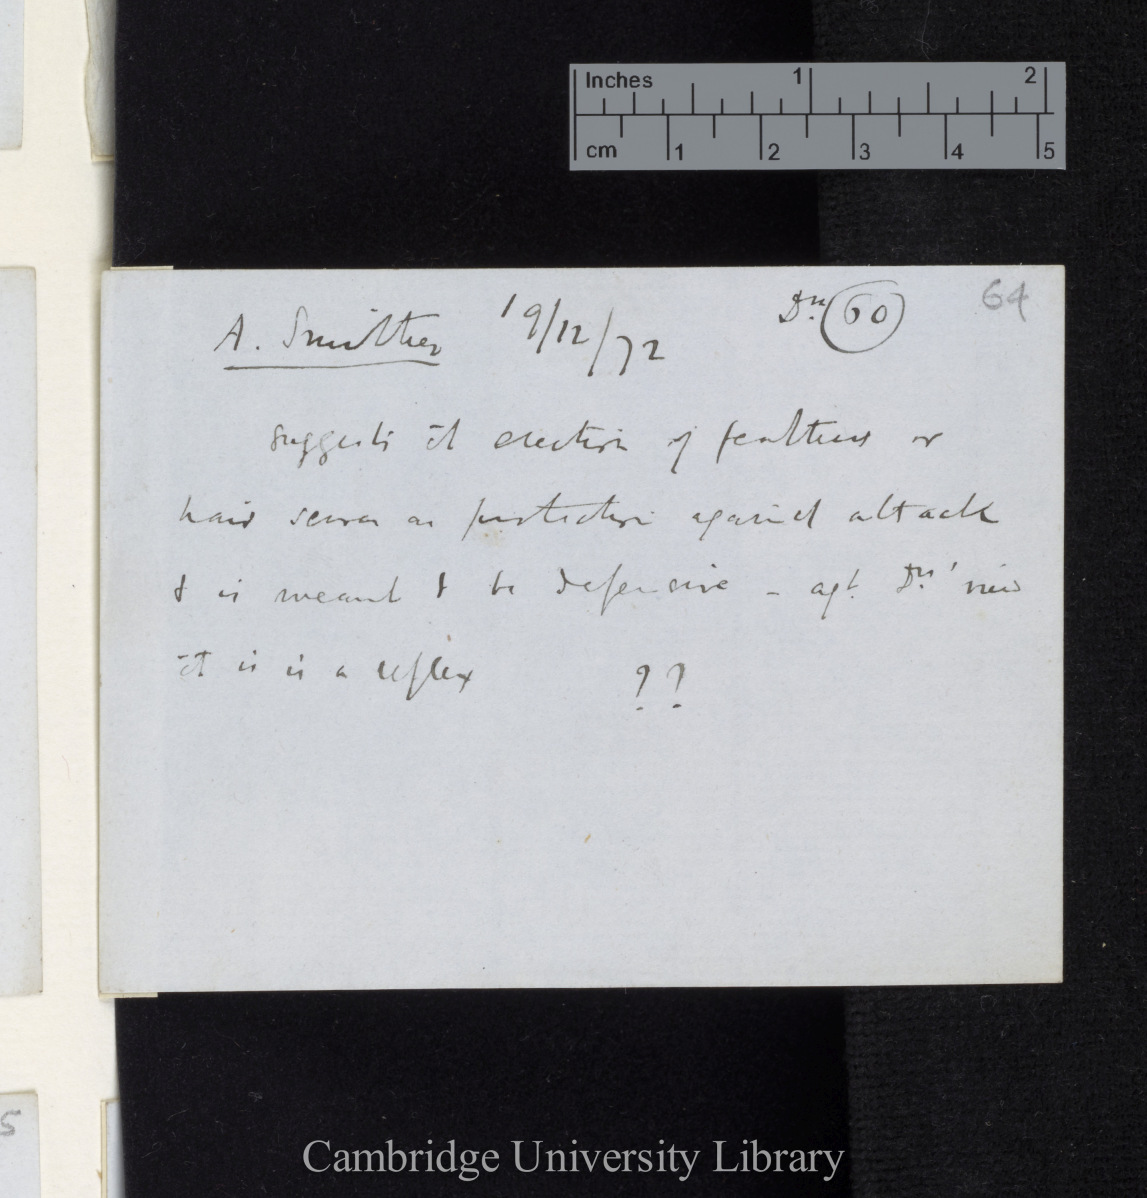 Inches 1 2
cm 1 2 3 4 5
64
A. Smither 19/12/72 Dn. 60
suggests it erection of feathers or
hair serves as protection against attack
& is meant to be defensive - agt. Dn' view
it is is a reflex ??
5
Cambridge University Library